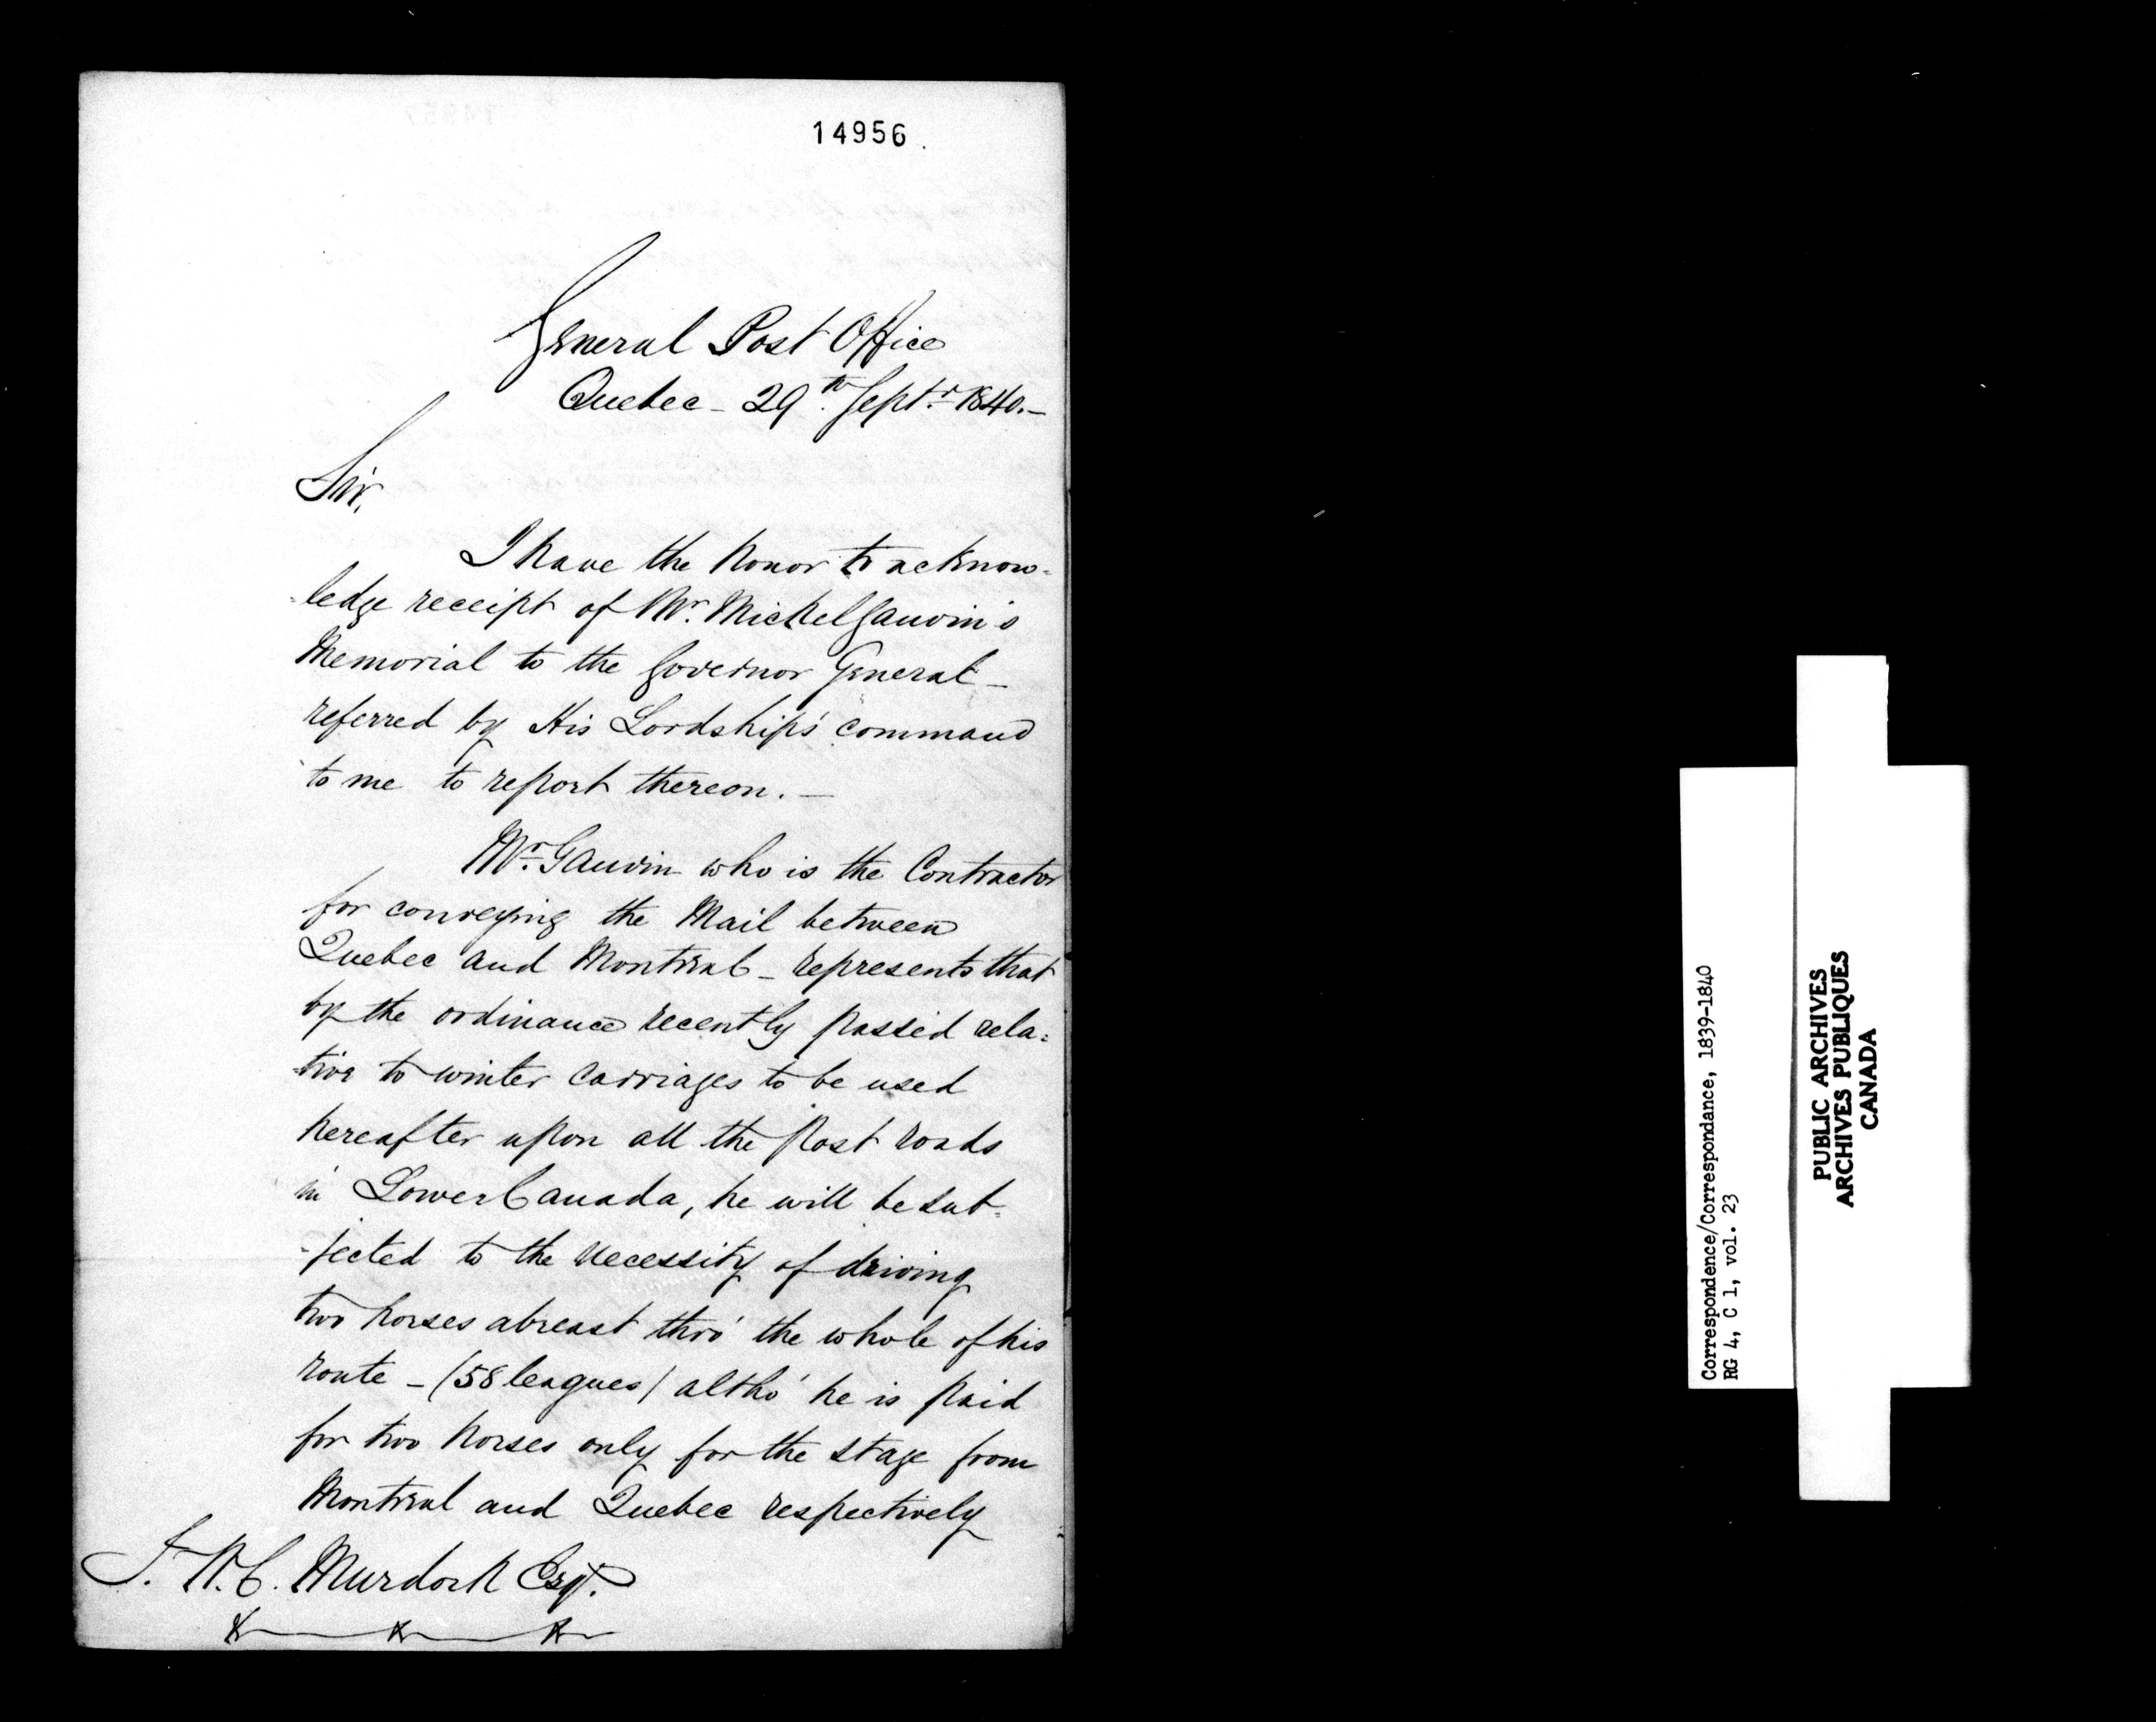 14956
General Post Office
Quebec - 29th. Septr. 1840.-
Sir,
I have the honor to acknow-
-ledge receipt of Mr. Michel Gauvin's
Memorial to the Governor General -
referred by His Lordship's command
to me to report thereon. -
Mr. Gauvin who is the Contractor
for conveying the Mail between
Quebec and Montreal - represents that
by the ordinance recently passed rela-
-tive to winter carriages to be used
hereafter upon all the Post roads
in Lower Canada, he will be sub-
-jected to the necessity of driving
two horses abreast thro' the whole of his
route - (58 leagues) altho' he is paid
for two horses only for the stage from
Montreal and Quebec respectively
T. W. C. Murdoch Esqr.
Correspondence/Correspondance, 1839-1840
RG 4, C 1, vol. 23
PUBLIC ARCHIVES
ARCHIVES PUBLIQUES
CANADA